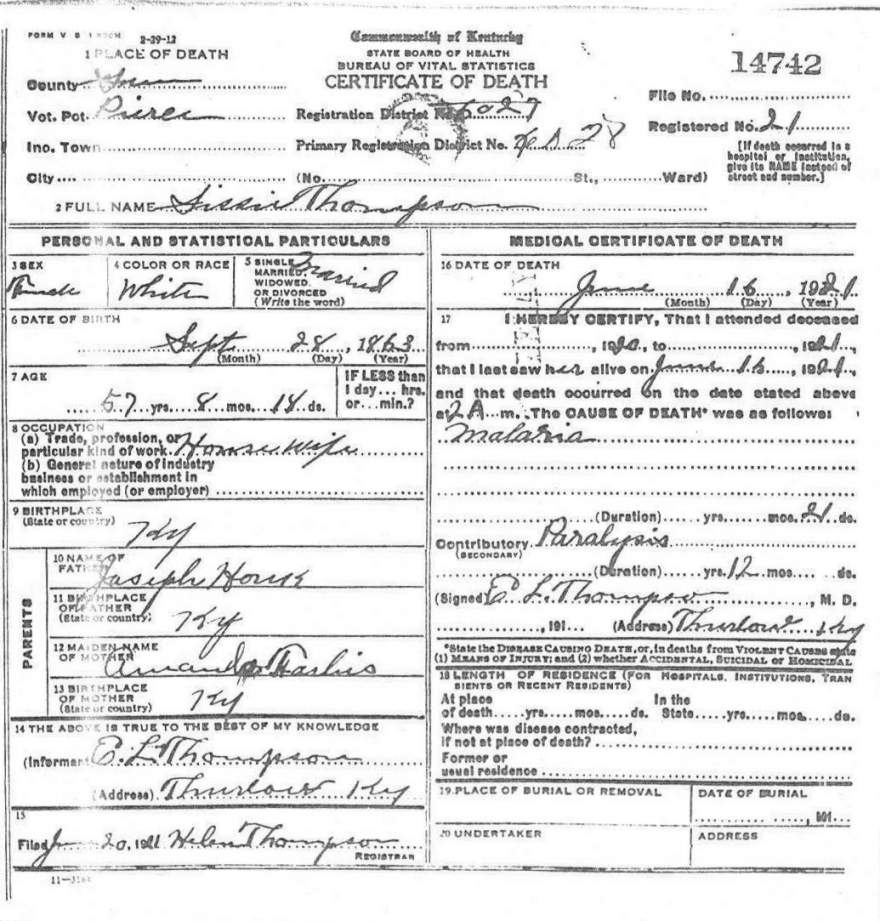 FORM V S 1 2-29-12
Commonwealth of Kentucky
STATE BOARD OF HEALTH
BUREAU OF VITAL STATISTICS
CERTIFICATE OF DEATH
14742
1 PLACE OF DEATH
County
Vot. Pct. Pierce
Registration District No. 6027
File No.
Inc. Town
Primary Registration District No.
Registered No. 21
[If death occurred in a hospital or institution, give its NAME instead of street and number.]
City (No. St., Ward)
2 FULL NAME Sissie Thompson
PERSONAL AND STATISTICAL PARTICULARS
3 SEX
4 COLOR OR RACE White
5 SINGLE, MARRIED, WIDOWED, OR DIVORCED (Write the word) Married
6 DATE OF BIRTH
Sept 28, 1863
(Month) (Day) (Year)
7 AGE
57 yrs. 8 mos. 18 ds.
IF LESS than 1 day... hrs. or... min.?
8 OCCUPATION
(a) Trade, profession, or particular kind of work House Wife
(b) General nature of industry
business or establishment in
which employed (or employer)
9 BIRTHPLACE
(State or country) Ky
PARENTS
10 NAME OF FATHER Joseph Houk
11 BIRTHPLACE OF FATHER (State or country) Ky
12 MAIDEN NAME OF MOTHER Amanda
13 BIRTHPLACE OF MOTHER (State or country) Ky
14 THE ABOVE IS TRUE TO THE BEST OF MY KNOWLEDGE
(Informant E. L. Thompson
(Address) Thurlow Ky
15
Filed 20, 1921 Helen Thompson
REGISTRAR
11-3184
MEDICAL CERTIFICATE OF DEATH
16 DATE OF DEATH
June 16 1921
(Month) (Day) (Year)
17 I HEREBY CERTIFY, That I attended deceased
from , 19 , to , 1921,
that I last saw her alive on June 15, 1921,
and that death occurred on the date stated above
at 2 A m. The CAUSE OF DEATH* was as follows:
Malaria
(Duration) yrs. mos. 21 ds.
Contributory Paralysis
(SECONDARY)
(Duration) yrs. 12 mos. ds.
(Signed) E. L. Thompson, M. D.
, 191 (Address) Thurlow Ky
*State the DISEASE CAUSING DEATH, or, in deaths from VIOLENT CAUSES state
(1) MEANS OF INJURY; and (2) whether ACCIDENTAL, SUICIDAL or HOMICIDAL
18 LENGTH OF RESIDENCE (FOR HOSPITALS, INSTITUTIONS, TRAN
SIENTS OR RECENT RESIDENTS)
At place In the
of death yrs. mos. ds. State yrs. mos. ds.
Where was disease contracted,
if not at place of death?
Former or
usual residence
19 PLACE OF BURIAL OR REMOVAL
DATE OF BURIAL
, 191
20 UNDERTAKER
ADDRESS